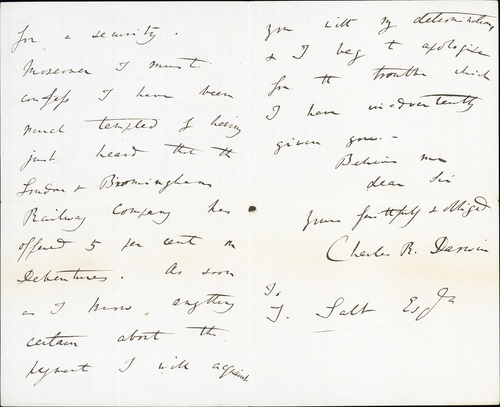 for a security.
Moreover I must
confess I have been
much tempted of having
just heard that the
London & Birmingham
Railway Company has
offered 5 per cent on
Debentures. As soon
as I know, anything
certain about the
payment I will acquaint
you with my determination,
& I beg to apologise
for the trouble which
I have inadvertently
given you.—
Believe me
dear Sir
Yours faithfully & obliged
Charles R. Darwin
To
T. Salt Esq Jr